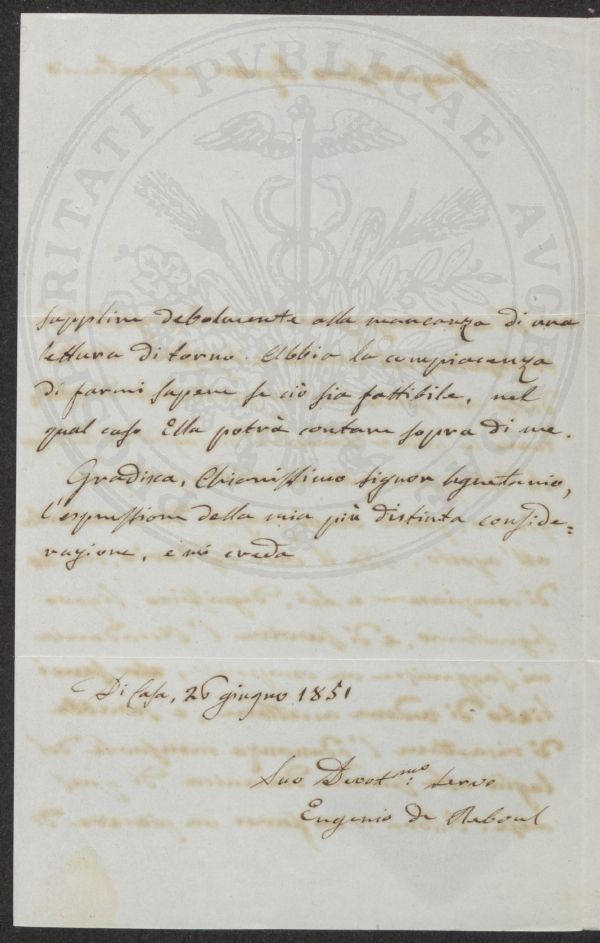 PROSPERITATI PUBLICAE AUGENDAE
supplire debolmente alla mancanza di una
lettura di torno. Abbia la compiacenza
di farmi sapere se ciò sia fattibile, nel
qual caso Ella potrà contare sopra di me.
Gradisca, Chiarissimo Signor Segretario,
l'espressione della mia più distinta conside=
razione, e mi creda
Di Casa, 26 giugno 1851
Suo Devot.mo servo
Eugenio de Reboul